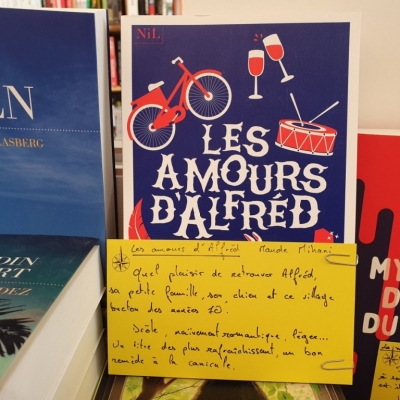 NiL
LES
AMOURS
D'ALFRÉD
Les amours d'Alfred Maude Mihami
Quel plaisir de retrouver Alfred,
sa petite famille, son chien et ce village
breton des années 70.
Drôle, naïvement romantique, léger...
Un titre des plus rafraîchissant, un bon
remède à la canicule.
LN
ASBERG
DIN
RT
DEZ
MY
D
DU